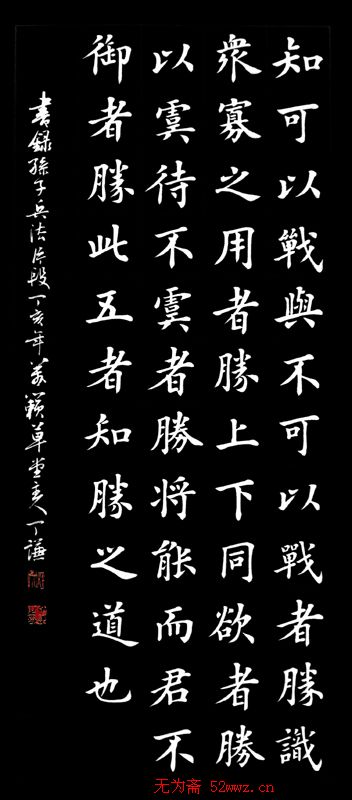 知可以戰與不可以戰者勝識
衆寡之用者勝上下同欲者勝
以虞待不虞者勝将能而君不
御者勝此五者知勝之道也
書録孫子兵法片段丁亥年萬籟草堂主人丁謙
无为斋 52wwz.cn